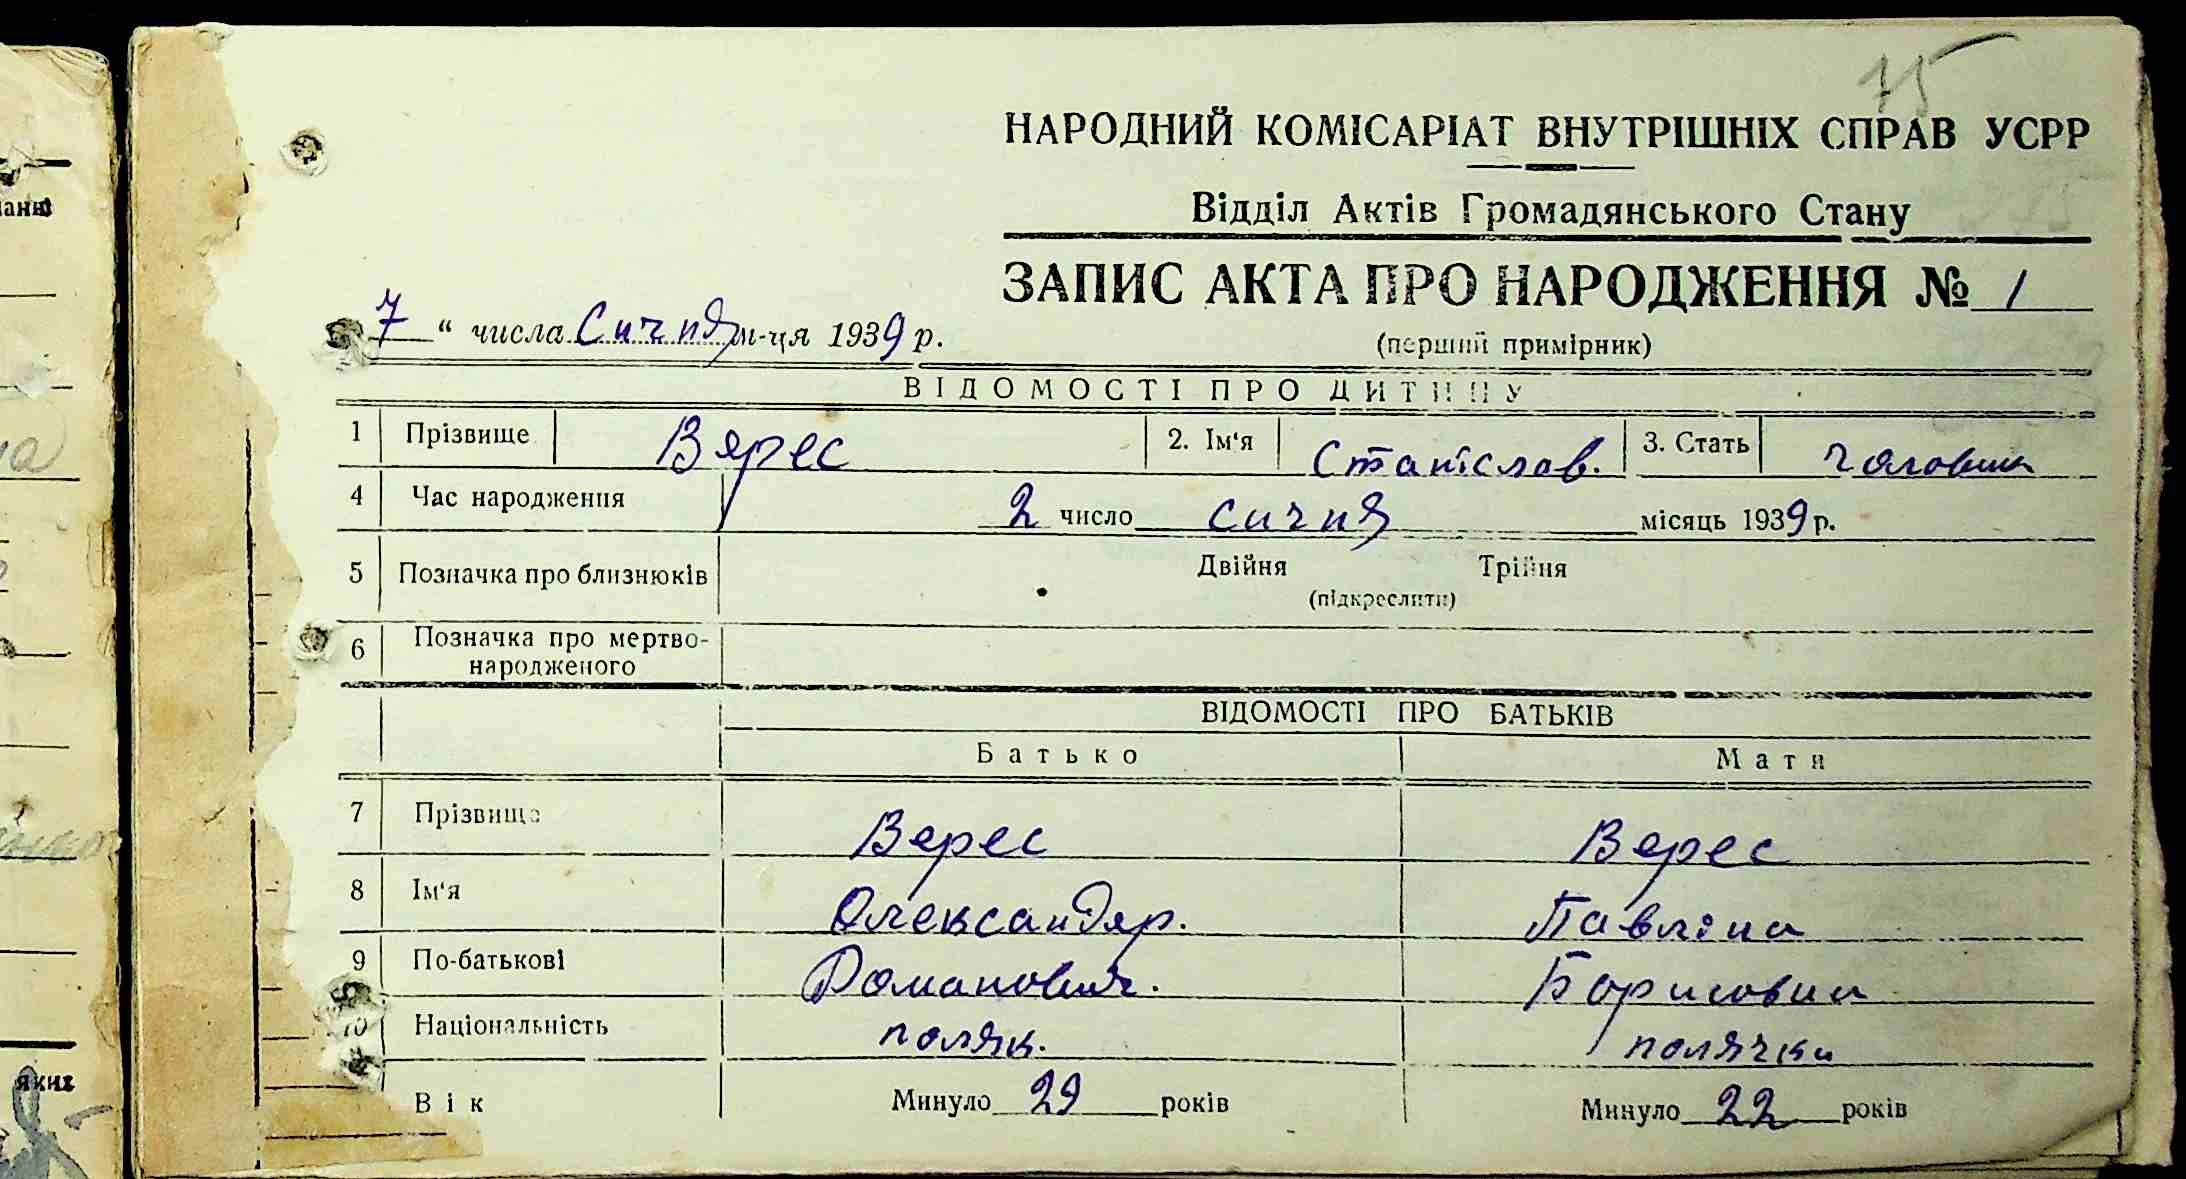 75
НАРОДНИЙ КОМІСАРІАТ ВНУТРІШНІХ СПРАВ УСРР
Відділ Актів Громадянського Стану
ЗАПИС АКТА ПРО НАРОДЖЕННЯ № 1
7 " числа Сичня м-ця 1939 р.
(перший примірник)
ВІДОМОСТІ ПРО ДИТИНУ
1 Прізвище Вярес 2. Ім'я Станіслав. 3. Стать
4 Час народження 2 число сичня місяць 1939 р.
5 Позначка про близнюків Двійня Трійня
(підкреслити)
6 Позначка про мертво-
народженого
ВІДОМОСТІ ПРО БАТЬКІВ
Батько Мати
7 Прізвище Верес Верес
8 Ім'я Олександяр. Павліна
9 По-батькові Романович. Борисовна
10 Національність поляк. полячка
Вік Минуло 29 років Минуло 22 років
яких